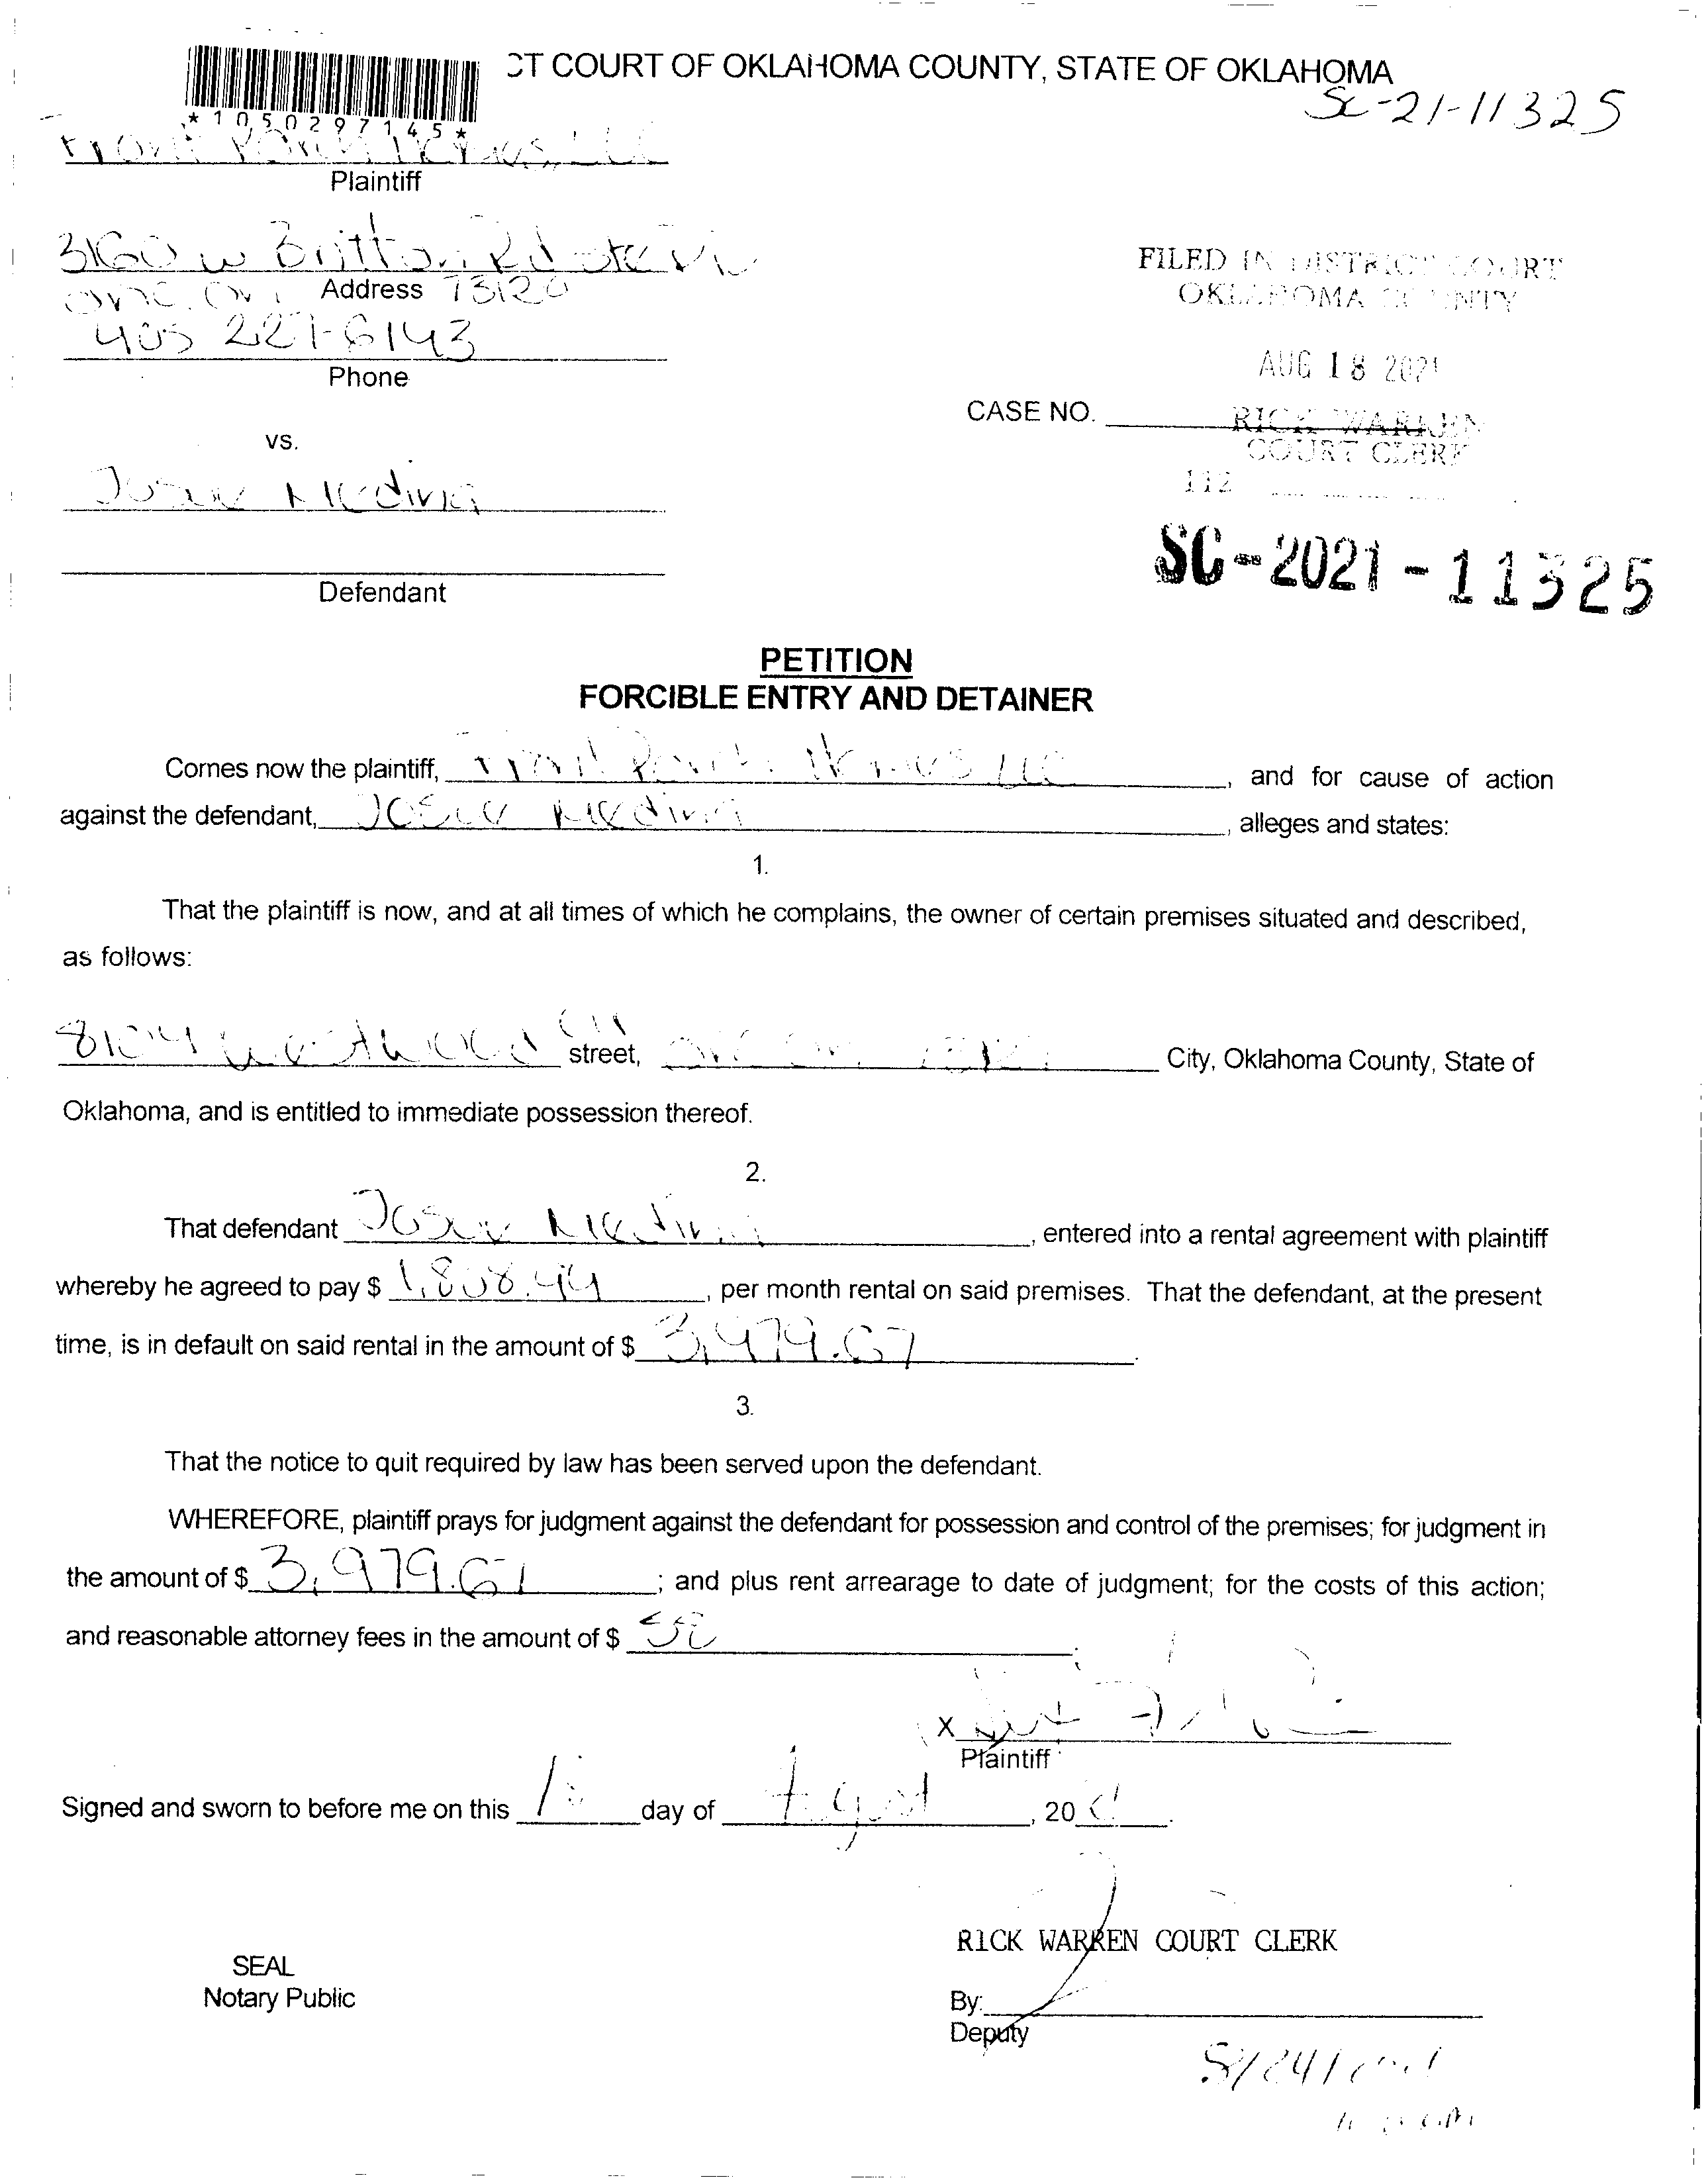 CT COURT OF OKLAHOMA COUNTY, STATE OF OKLAHOMA
SC-21-11325
*1050297145*
Front Porch Homes, LLC
Plaintiff
3160 W Britton Rd Ste
Address 73120
405 227-6143
Phone
FILED IN DISTRICT COURT
OKLAHOMA COUNTY
AUG 18 2021
CASE NO.
RICK WARREN
COURT CLERK
112
vs.
Josue Medina
SC-2021-11325
Defendant
PETITION
FORCIBLE ENTRY AND DETAINER
Comes now the plaintiff, Front Porch Homes LLC, and for cause of action
against the defendant, Josue Medina, alleges and states:
1.
That the plaintiff is now, and at all times of which he complains, the owner of certain premises situated and described,
as follows:
8104 Westwood street, City, Oklahoma County, State of
Oklahoma, and is entitled to immediate possession thereof.
2.
That defendant Josue Medina, entered into a rental agreement with plaintiff
whereby he agreed to pay $ 1,808.44, per month rental on said premises. That the defendant, at the present
time, is in default on said rental in the amount of $ 3,979.67.
3.
That the notice to quit required by law has been served upon the defendant.
WHEREFORE, plaintiff prays for judgment against the defendant for possession and control of the premises; for judgment in
the amount of $ 3,979.67; and plus rent arrearage to date of judgment; for the costs of this action;
and reasonable attorney fees in the amount of $
X
Plaintiff
Signed and sworn to before me on this day of August, 20 21.
RICK WARREN COURT CLERK
SEAL
Notary Public
By:
Deputy